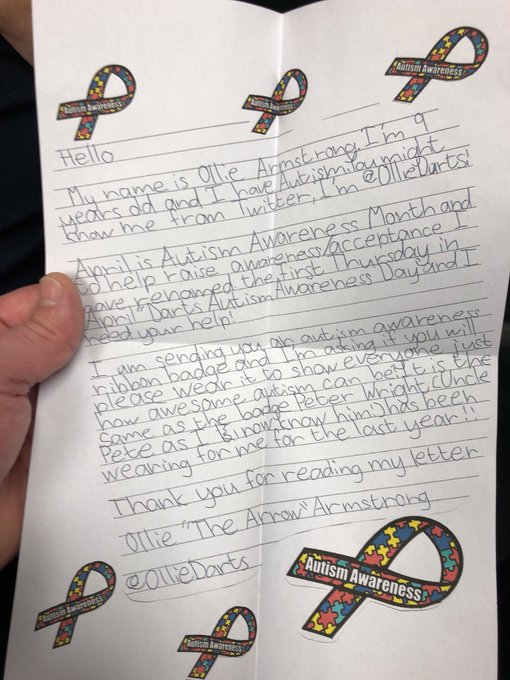 Autism Awareness
Autism Awareness
Autism Awareness
Hello
My name is Ollie Armstrong. I'm 9
years old and I have Autism. You might
know me from Twitter, I'm @OllieDarts!
April is Autism Awareness Month and
to help raise awareness/acceptance I
have renamed the first Thursday in
April "Darts Autism Awareness Day" and I
need your help!
I am sending you an autism awareness
ribbon badge and I'm asking if you will
please wear it to show everyone just
how awesome autism can be. It is the
same as the badge Peter Wright (Uncle
Pete as I now know him) has been
wearing for me for the last year!!
Thank you for reading my letter
Ollie "The Arrow" Armstrong
@OllieDarts
Autism Awareness
Autism Awareness
Autism Awareness